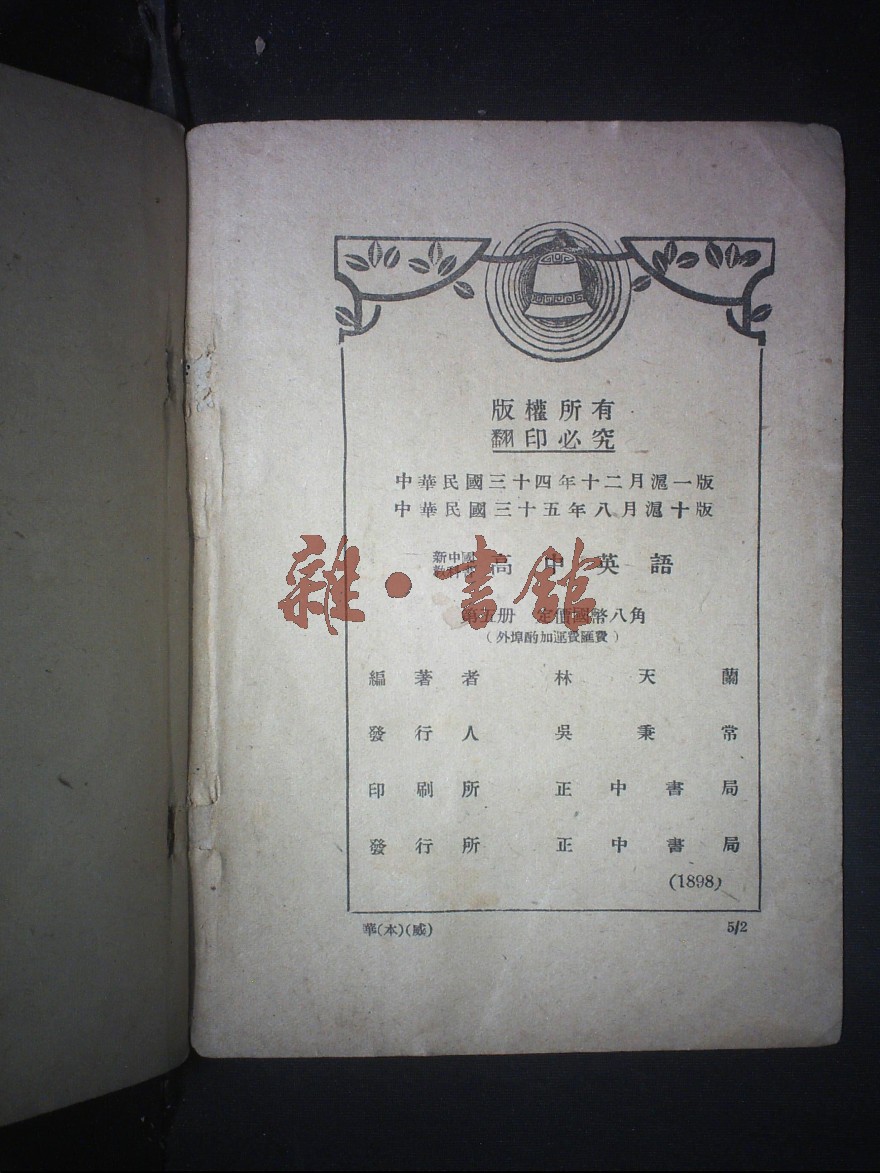 版權所有
翻印必究
中華民國三十四年十二月滬一版
中華民國三十五年八月滬十版
新中國
教科書 高中英語
第五册 定價國幣八角
(外埠酌加運費匯費)
編著者 林天蘭
發行人 吳秉常
印刷所 正中書局
發行所 正中書局
(1898)
華(本)(威) 5/2
雜·書館